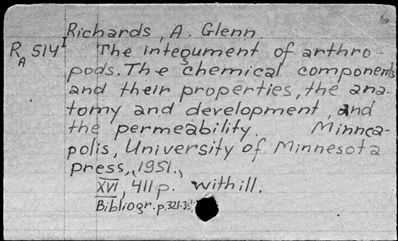 Richards, A. Glenn.
RA 514 I The integument of arthro-
pods. The chemical components
and their properties, the ana-
tomy and development, and
the permeability. Minnea-
polis, University of Minnesota
press, (1951.)
XVI, 411 p. with ill.
Bibliogr. p. 321-